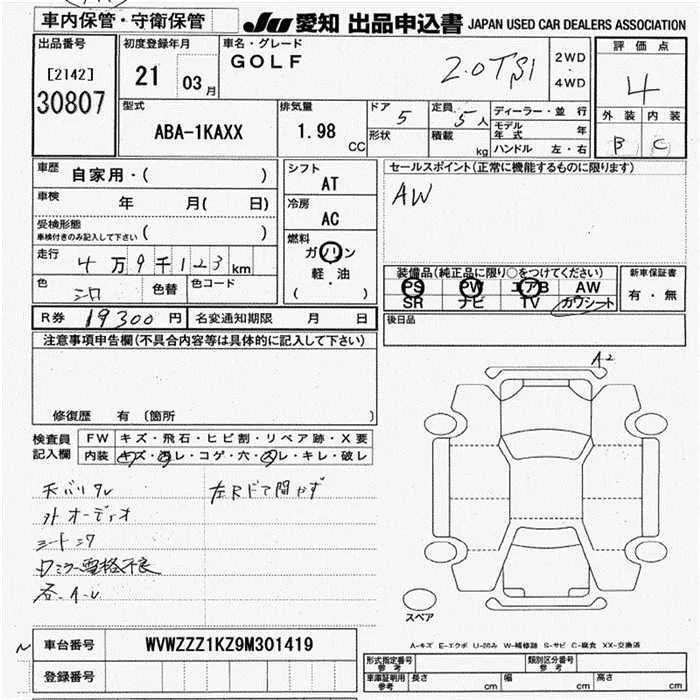 車内保管・守衛保管
JU 愛知 出品申込書 JAPAN USED CAR DEALERS ASSOCIATION
出品番号
[2142]
30807
初度登録年月
21 03 月
車名・グレード
GOLF
2.0TSI
2WD
・
4WD
評価点
4
外装 内装
B C
型式
ABA-1KAXX
排気量
1.98 CC
ドア 5
形状
定員 5 人
積載 kg
ディーラー・並行
モデル年式
ハンドル 左・右
車歴 自家用・( )
車検 年 月( 日)
受検形態
車検付きのみ記入して下さい ( )
走行 4万9千123 km
色 シロ 色替 色コード
シフト
AT
冷房
AC
燃料
ガソリン
軽・油
( )
セールスポイント(正常に機能するものに限ります)
AW
装備品(純正品に限り○をつけてください)
PS PW エアB AW
SR ナビ TV カワシート
新車保証書
有・無
R券 19300 円 名変通知期限 月 日
後日品
注意事項申告欄(不具合内容等は具体的に記入して下さい)
修復歴 有 〔箇所 〕
検査員記入欄
FW キズ・飛石・ヒビ割・リペア跡・X要
内装 キズ・汚レ・コゲ・穴・スレ・キレ・破レ
天バリタレ
左Rドア開かず
外オーディオ
A2
スペア
A-キズ E-エクボ U-凹み W-補修跡 S-サビ C-腐食 XX-交換済
車台番号 WVWZZZ1KZ9M301419
登録番号
形式指定番号参考 類別区分番号参考
車庫証明用参考 長さ cm 幅 cm 高さ cm